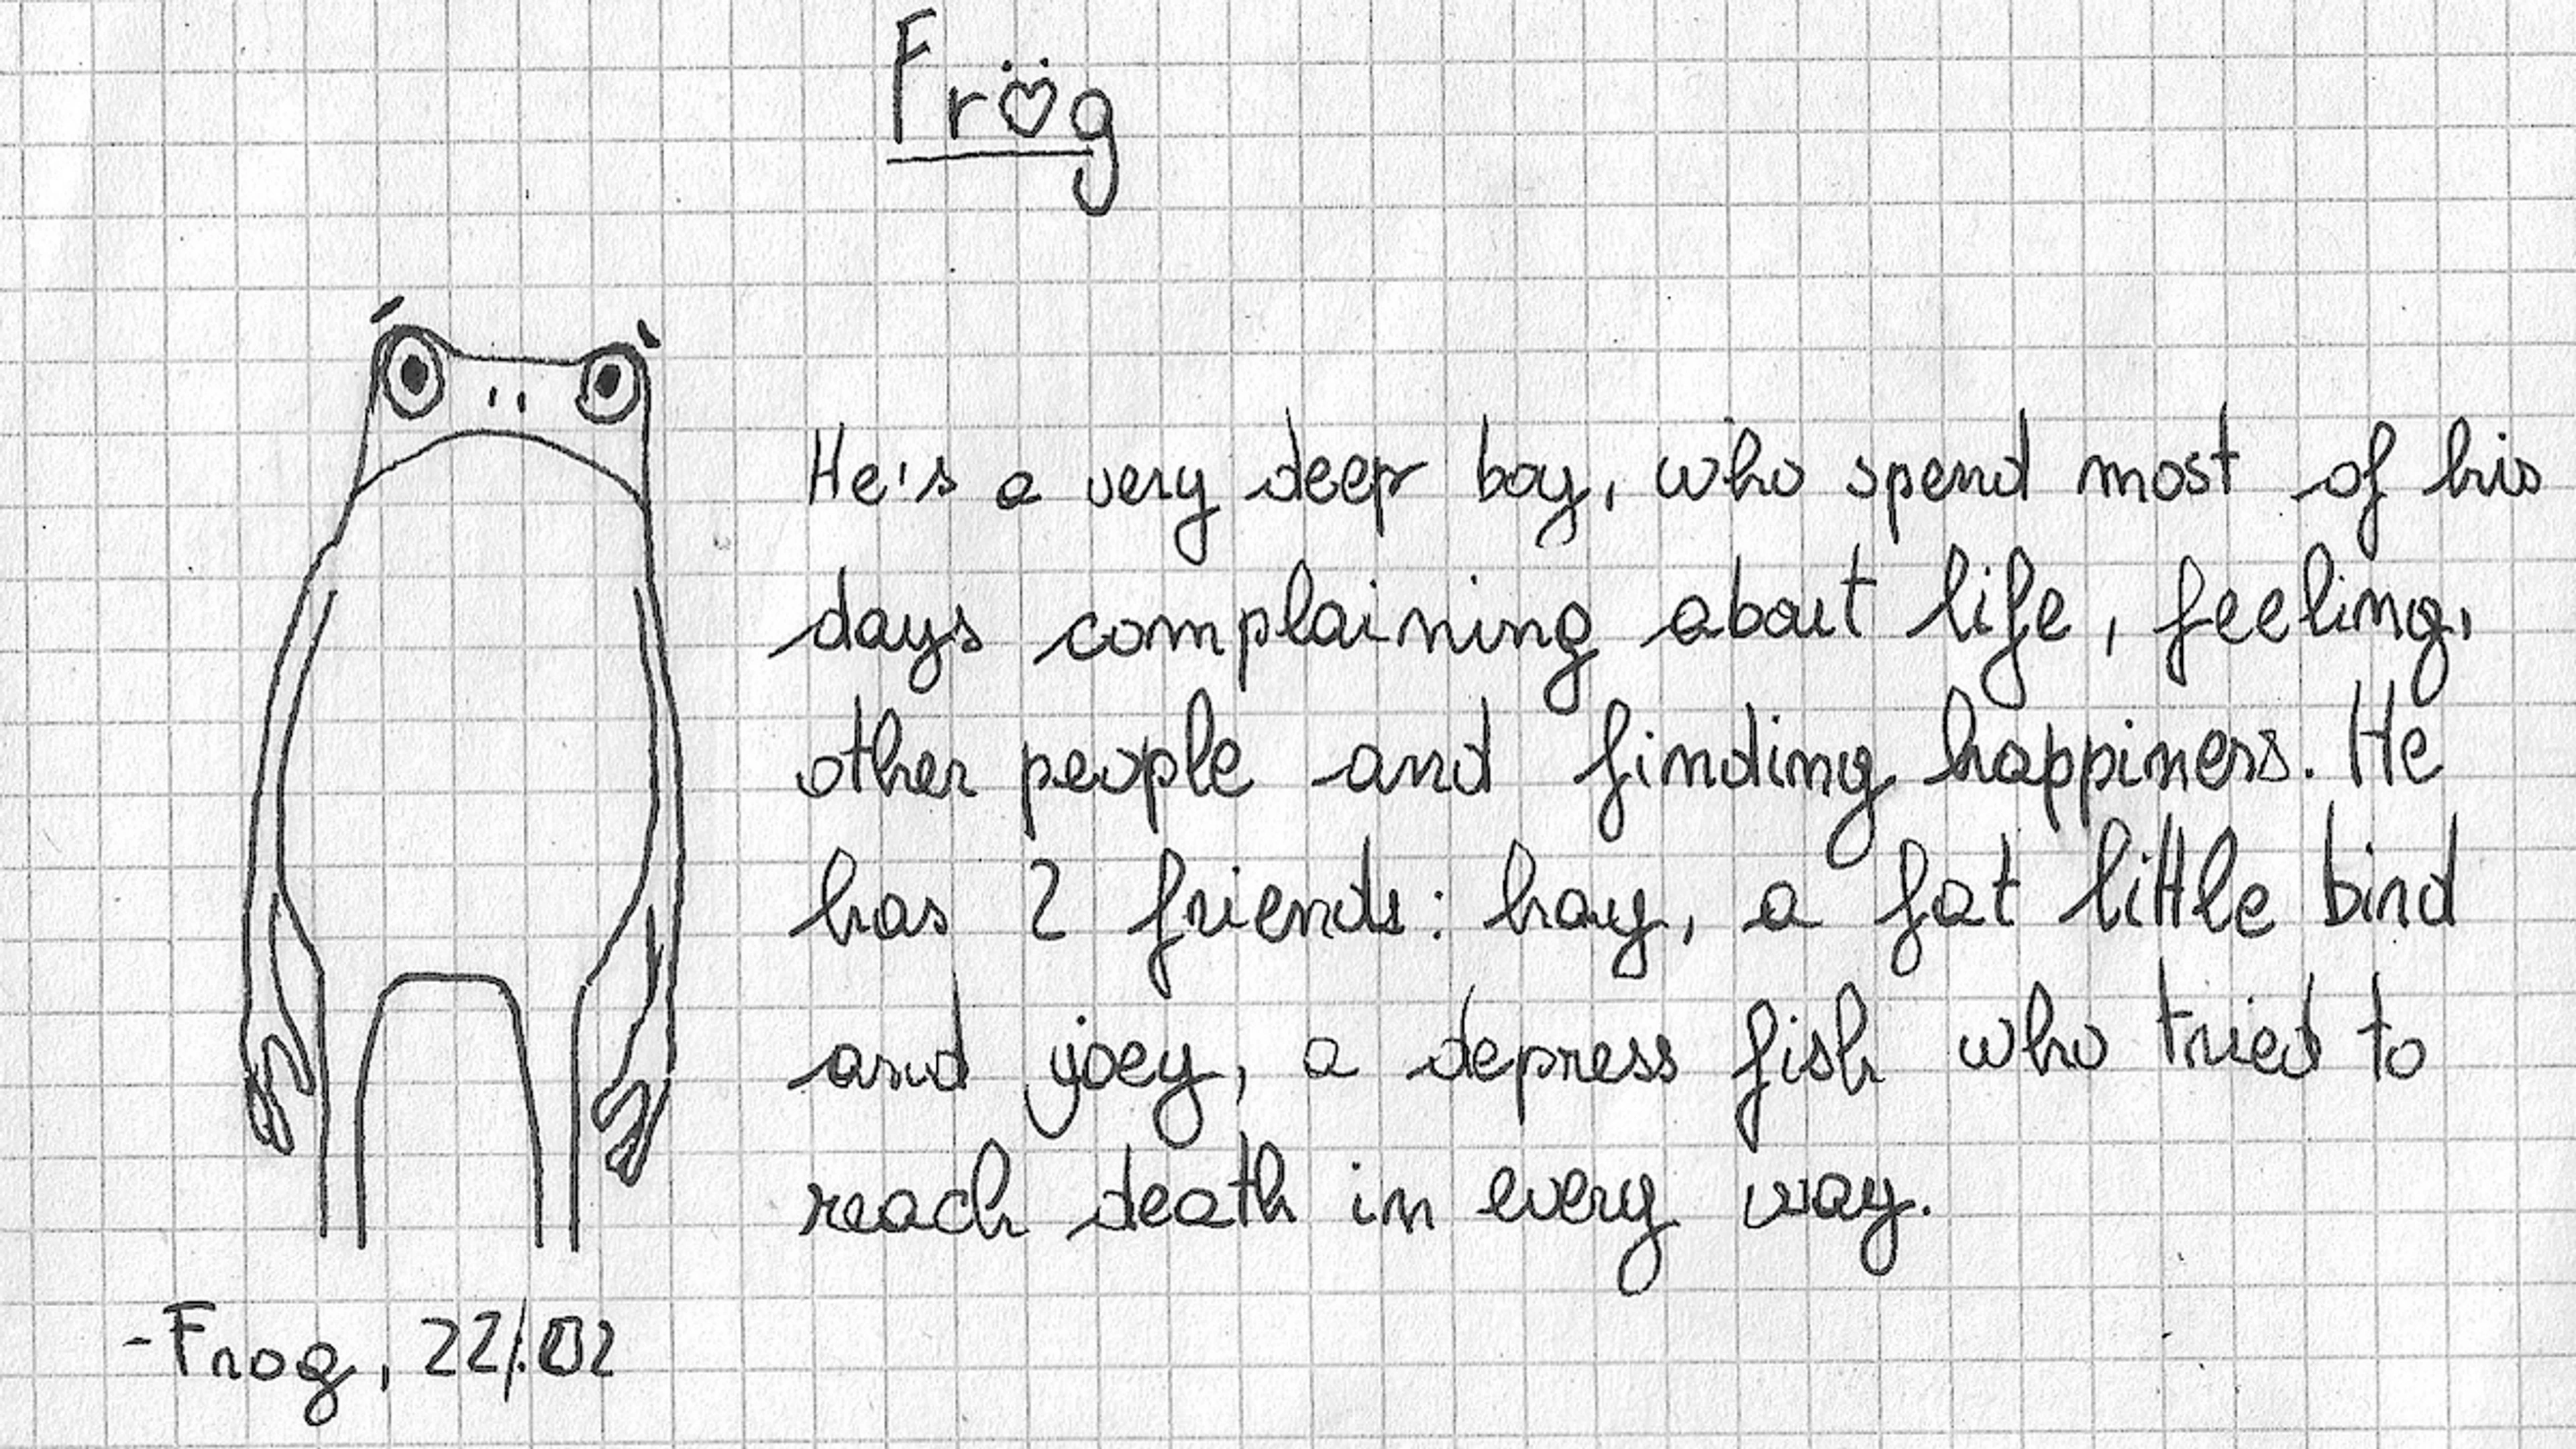 Frög
He's a very deep boy, who spend most of his
days complaining about life, feeling,
other people and finding happiness. He
has 2 friends: hay, a fat little bird
and joey, a depress fish who tried to
reach death in every way.
-Frog, 22/02